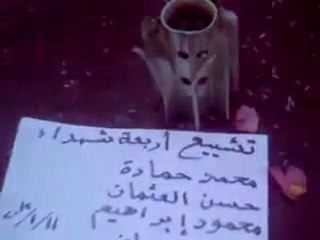 تشييع أربعة شهداء
محمد حمادة
حسن العثمان
محمود إبراهيم